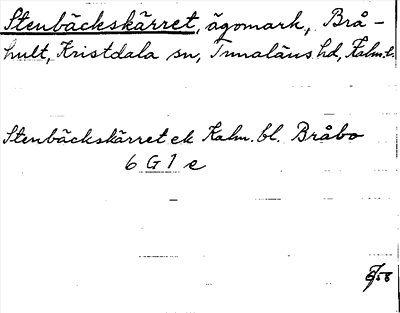 Stenbäckskärret, ägomark, Brå-
hult, Kristdala sn, Tunaläns hd, Kalm. l.
Stenbäckskärret ek Kalm. bl. Bråbo
6 G 1 e